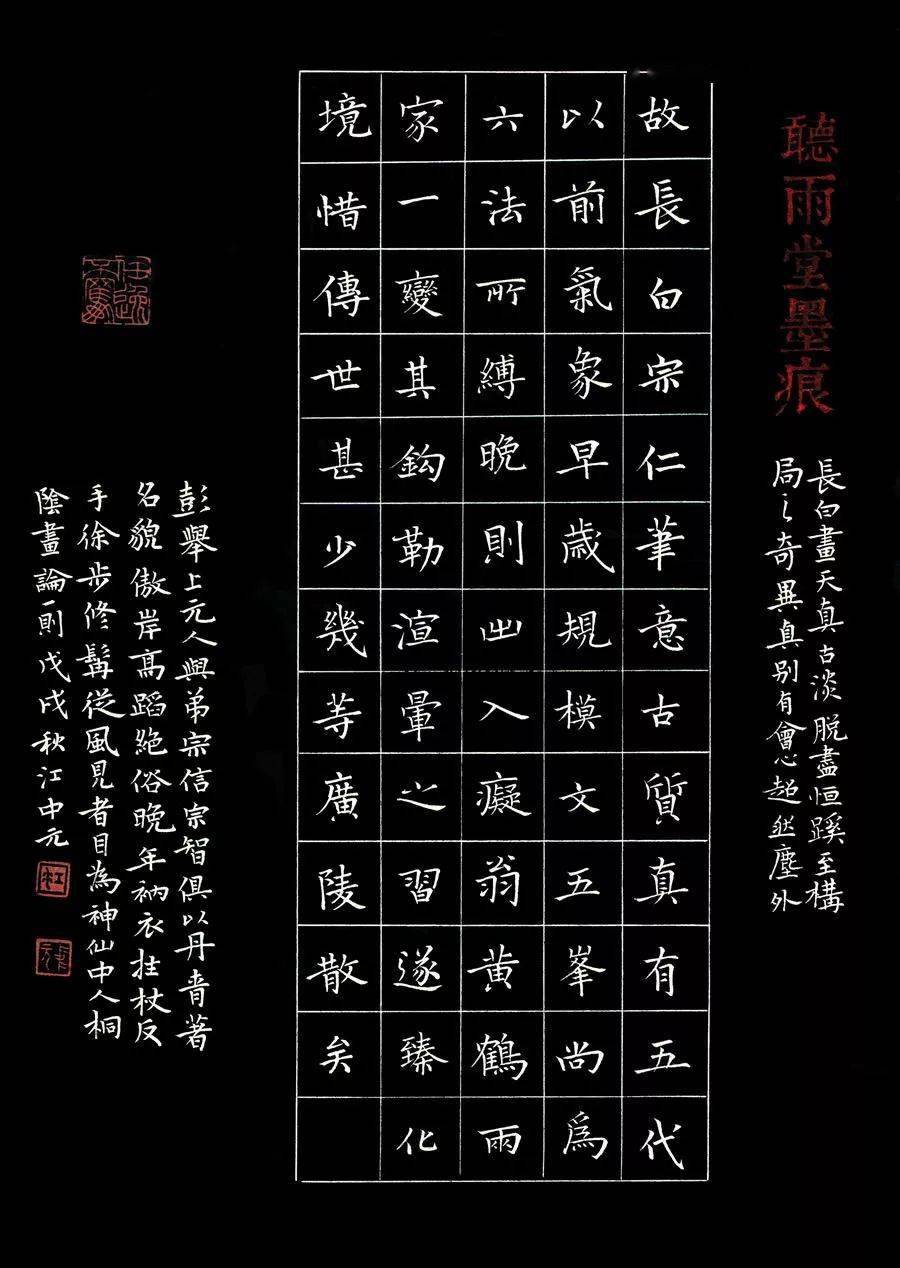 聽雨堂墨痕
長白畫天真古淡脫盡恒蹊至構
局之奇異真别有會心超然塵外
故長白宗仁筆意古質真有五代
以前氣象早歲規模文五峯尚爲
六法所縛晚則出入癡翁黄鶴兩
家一變其鈎勒渲暈之習遂臻化
境惜傳世甚少幾等廣陵散矣
彭舉上元人與弟宗信宗智俱以丹青著
名貌傲岸高蹈絕俗晚年衲衣拄杖反
手徐步修髯從風見者目為神仙中人桐
陰畫論一則戊戌秋江中元